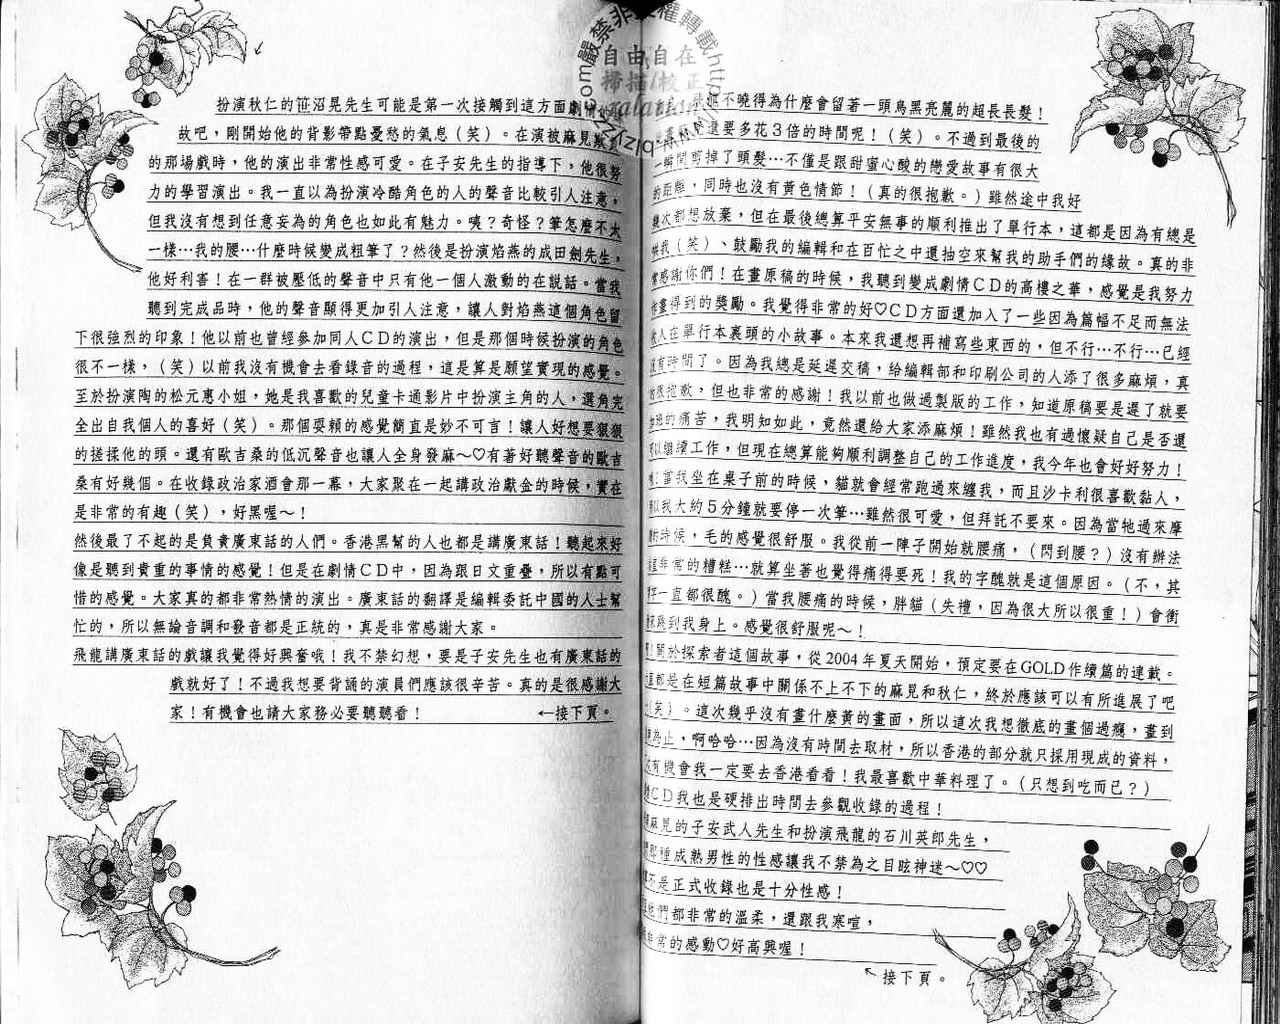 嚴禁非
權轉載http
自由自在
掃描/校正
扮演秋仁的笹沼晃先生可能是第一次接觸到這方面劇情的
故吧，剛開始他的背影帶點憂愁的氣息（笑）。在演被麻見欺
的那場戲時，他的演出非常性感可愛。在子安先生的指導下，他很努
力的學習演出。我一直以為扮演冷酷角色的人的聲音比較引人注意，
但我沒有想到任意妄為的角色也如此有魅力。咦？奇怪？筆怎麼不太
一樣…我的腰…什麼時候變成粗筆了？然後是扮演焰燕的成田劍先生，
他好利害！在一群被壓低的聲音中只有他一個人激動的在說話。當我
聽到完成品時，他的聲音顯得更加引人注意，讓人對焰燕這個角色留
下很強烈的印象！他以前也曾經參加同人CD的演出，但是那個時候扮演的角色
很不一樣，（笑）以前我沒有機會去看錄音的過程，這是算是願望實現的感覺。
至於扮演陶的松元惠小姐，她是我喜歡的兒童卡通影片中扮演主角的人，選角完
全出自我個人的喜好（笑）。那個耍賴的感覺簡直是妙不可言！讓人好想要狠狠
的搓揉他的頭。還有歐吉桑的低沉聲音也讓人全身發麻～♡有著好聽聲音的歐吉
桑有好幾個。在收錄政治家酒會那一幕，大家聚在一起講政治獻金的時候，實在
是非常的有趣（笑），好黑喔～！
然後最了不起的是負責廣東話的人們。香港黑幫的人也都是講廣東話！聽起來好
像是聽到貴重的事情的感覺！但是在劇情CD中，因為跟日文重疊，所以有點可
惜的感覺。大家真的都非常熱情的演出。廣東話的翻譯是編輯委託中國的人士幫
忙的，所以無論音調和發音都是正統的，真是非常感謝大家。
飛龍講廣東話的戲讓我覺得好興奮哦！我不禁幻想，要是子安先生也有廣東話的
戲就好了！不過我想要背誦的演員們應該很辛苦。真的是很感謝大
家！有機會也請大家務必要聽聽看！
←接下頁。
不曉得為什麼會留著一頭烏黑亮麗的超長長髮！
還要多花3倍的時間呢！（笑）。不過到最後的
一瞬間剪掉了頭髮…不僅是跟甜蜜心酸的戀愛故事有很大
的距離，同時也沒有黃色情節！（真的很抱歉。）雖然途中我好
幾次都想放棄，但在最後總算平安無事的順利推出了單行本，這都是因為有總是
我（笑）、鼓勵我的編輯和在百忙之中還抽空來幫我的助手們的緣故。真的非
常感謝你們！在畫原稿的時候，我聽到變成劇情CD的高樓之華，感覺是我努力
畫得到的獎勵。我覺得非常的好♡CD方面還加入了一些因為篇幅不足而無法
人在單行本裏頭的小故事。本來我還想再補寫些東西的，但不行…不行…已經
有時間了。因為我總是延遲交稿，給編輯部和印刷公司的人添了很多麻煩，真
抱歉，但也非常的感謝！我以前也做過製版的工作，知道原稿要是遲了就要
的痛苦，我明知如此，竟然還給大家添麻煩！雖然我也有過懷疑自己是否還
以繼續工作，但現在總算能夠順利調整自己的工作進度，我今年也會好好努力！
當我坐在桌子前的時候，貓就會經常跑過來纏我，而且沙卡利很喜歡黏人，
以我大約5分鐘就要停一次筆…雖然很可愛，但拜託不要來。因為當牠過來摩
的時候，毛的感覺很舒服。我從前一陣子開始就腰痛，（閃到腰？）沒有辦法
非常的糟糕…就算坐著也覺得痛得要死！我的字醜就是這個原因。（不，其
字一直都很醜。）當我腰痛的時候，胖貓（失禮，因為很大所以很重！）會衝
跳到我身上。感覺很舒服呢～！
關於探索者這個故事，從2004年夏天開始，預定要在GOLD作續篇的連載。
都是在短篇故事中關係不上不下的麻見和秋仁，終於應該可以有所進展了吧
（笑）。這次幾乎沒有畫什麼黃的畫面，所以這次我想徹底的畫個過癮，畫到
為止，啊哈哈…因為沒有時間去取材，所以香港的部分就只採用現成的資料，
有機會我一定要去香港看看！我最喜歡中華料理了。（只想到吃而已？）
CD我也是硬排出時間去參觀收錄的過程！
麻見的子安武人先生和扮演飛龍的石川英郎先生，
那種成熟男性的性感讓我不禁為之目眩神迷～♡♡
不是正式收錄也是十分性感！
他們都非常的溫柔，還跟我寒喧，
非常的感動♡好高興喔！
接下頁。